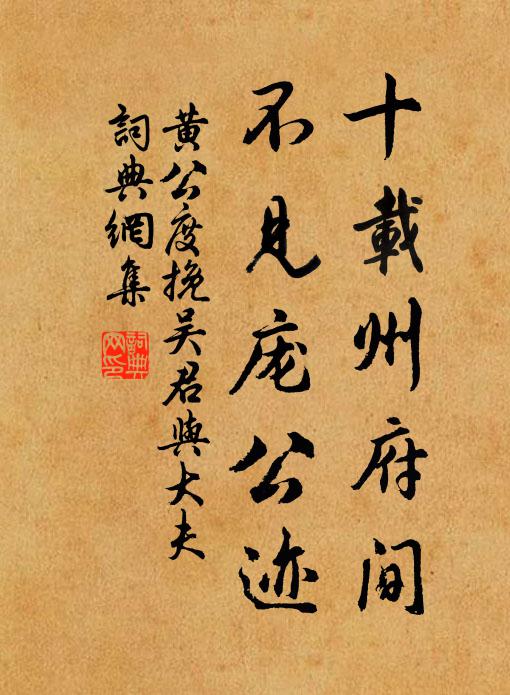 十載州府間
不見庞公迹
黄公度挽吴君與大夫
詞典網集
詞典网印